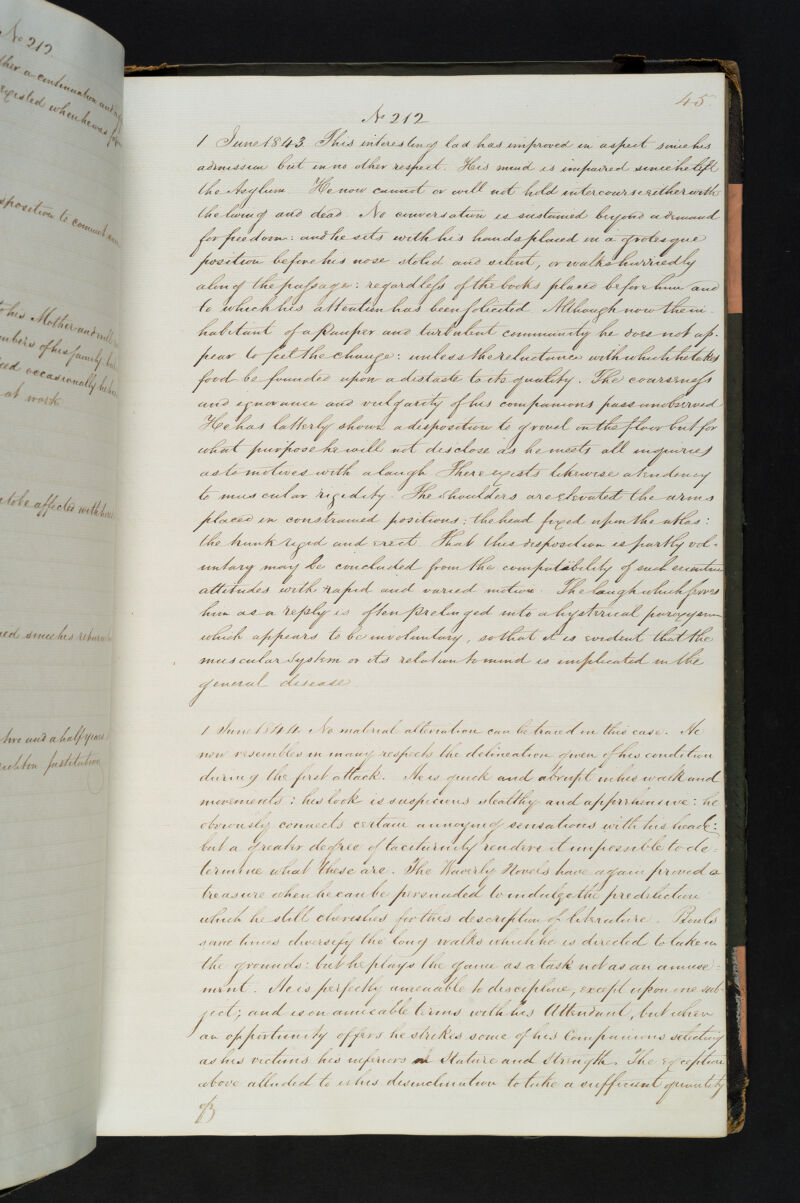 No 212
ther a continuation and
existed when he was
sposition to commit
his Mother and
mbers of his family
ced occasionally
at work
to be affected with
ned since his return
two and a half years
Institution
45.
No 212
1 June 1843. This interesting lad has improved in aspect since his
admission but in no other respect. His mind is impaired since he left
the Asylum. He now cannot or will not hold intercourse either with
the living and dead. No conversation is sustained beyond a demand
for freedom: and he sits with his hands placed in a grotesque
position before his nose stolid and silent, or walks hurriedly
along the passage: regardless of the books placed before him and
to which his attention has been solicited. Although now the in-
habitant of a Pauper and turbulent community he does not ap-
pear to feel the change: unless the reluctance with which he takes
food be founded upon a distaste to its quality. The coarseness
and ignorance and vulgarity of his companions pass unobserved
He has latterly shown a disposition to grovel on the floor but for
what purpose he will not disclose as he meets all inquiries
as to motives with a laugh There exists likewise a tendency
to muscular rigidity. The shoulders are elevated the arms
placed in constrained positions; the head fixed upon the atlas:
the trunk rigid and erect. That this disposition is partly vol-
untary may be concluded from the compatibility of such
attitudes with rapid and varied motion. The laugh which
him as a reply is often prolonged into a hysterical paroxysm
which appears to be involuntary, so that it is evident that the
muscular system or its relation to mind is implicated in the
general disease.
1 June 1844. No material alteration can be traced in this case. He
now resembles in many respects the delineation given of his condition
during the first attack. He is quick and abrupt in his walk and
movements: his look is suspicious stealthy and apprehensive: he
obviously connects certain annoying sensations with his head:
but a greater degree of taciturnity renders it impossible to de-
termine what these are. The Waverly Novels have again proved a
treasure when he can be persuaded to indulge the predilection
which he still cherishes for this description of literature. Bowls
some times diversify the long walks which he is directed to take in
the grounds: but he plays the game as a task not as an amuse-
ment. He is perfectly amenable to discipline, except upon one sub-
ject; and is on amicable terms with his Attendant, but when
an opportunity offers he strikes some of his Companions selecting
as his victims his inferiors in Stature and Strength. The exception
above alluded to is his disinclination to take a sufficient quantity
of